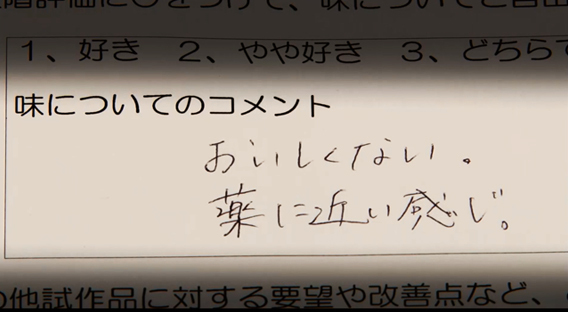 階評価に○をつけて、味についてご自由
1、好き 2、やや好き 3、どちらで
味についてのコメント
おいしくない。
薬に近い感じ。
の他試作品に対する要望や改善点など、